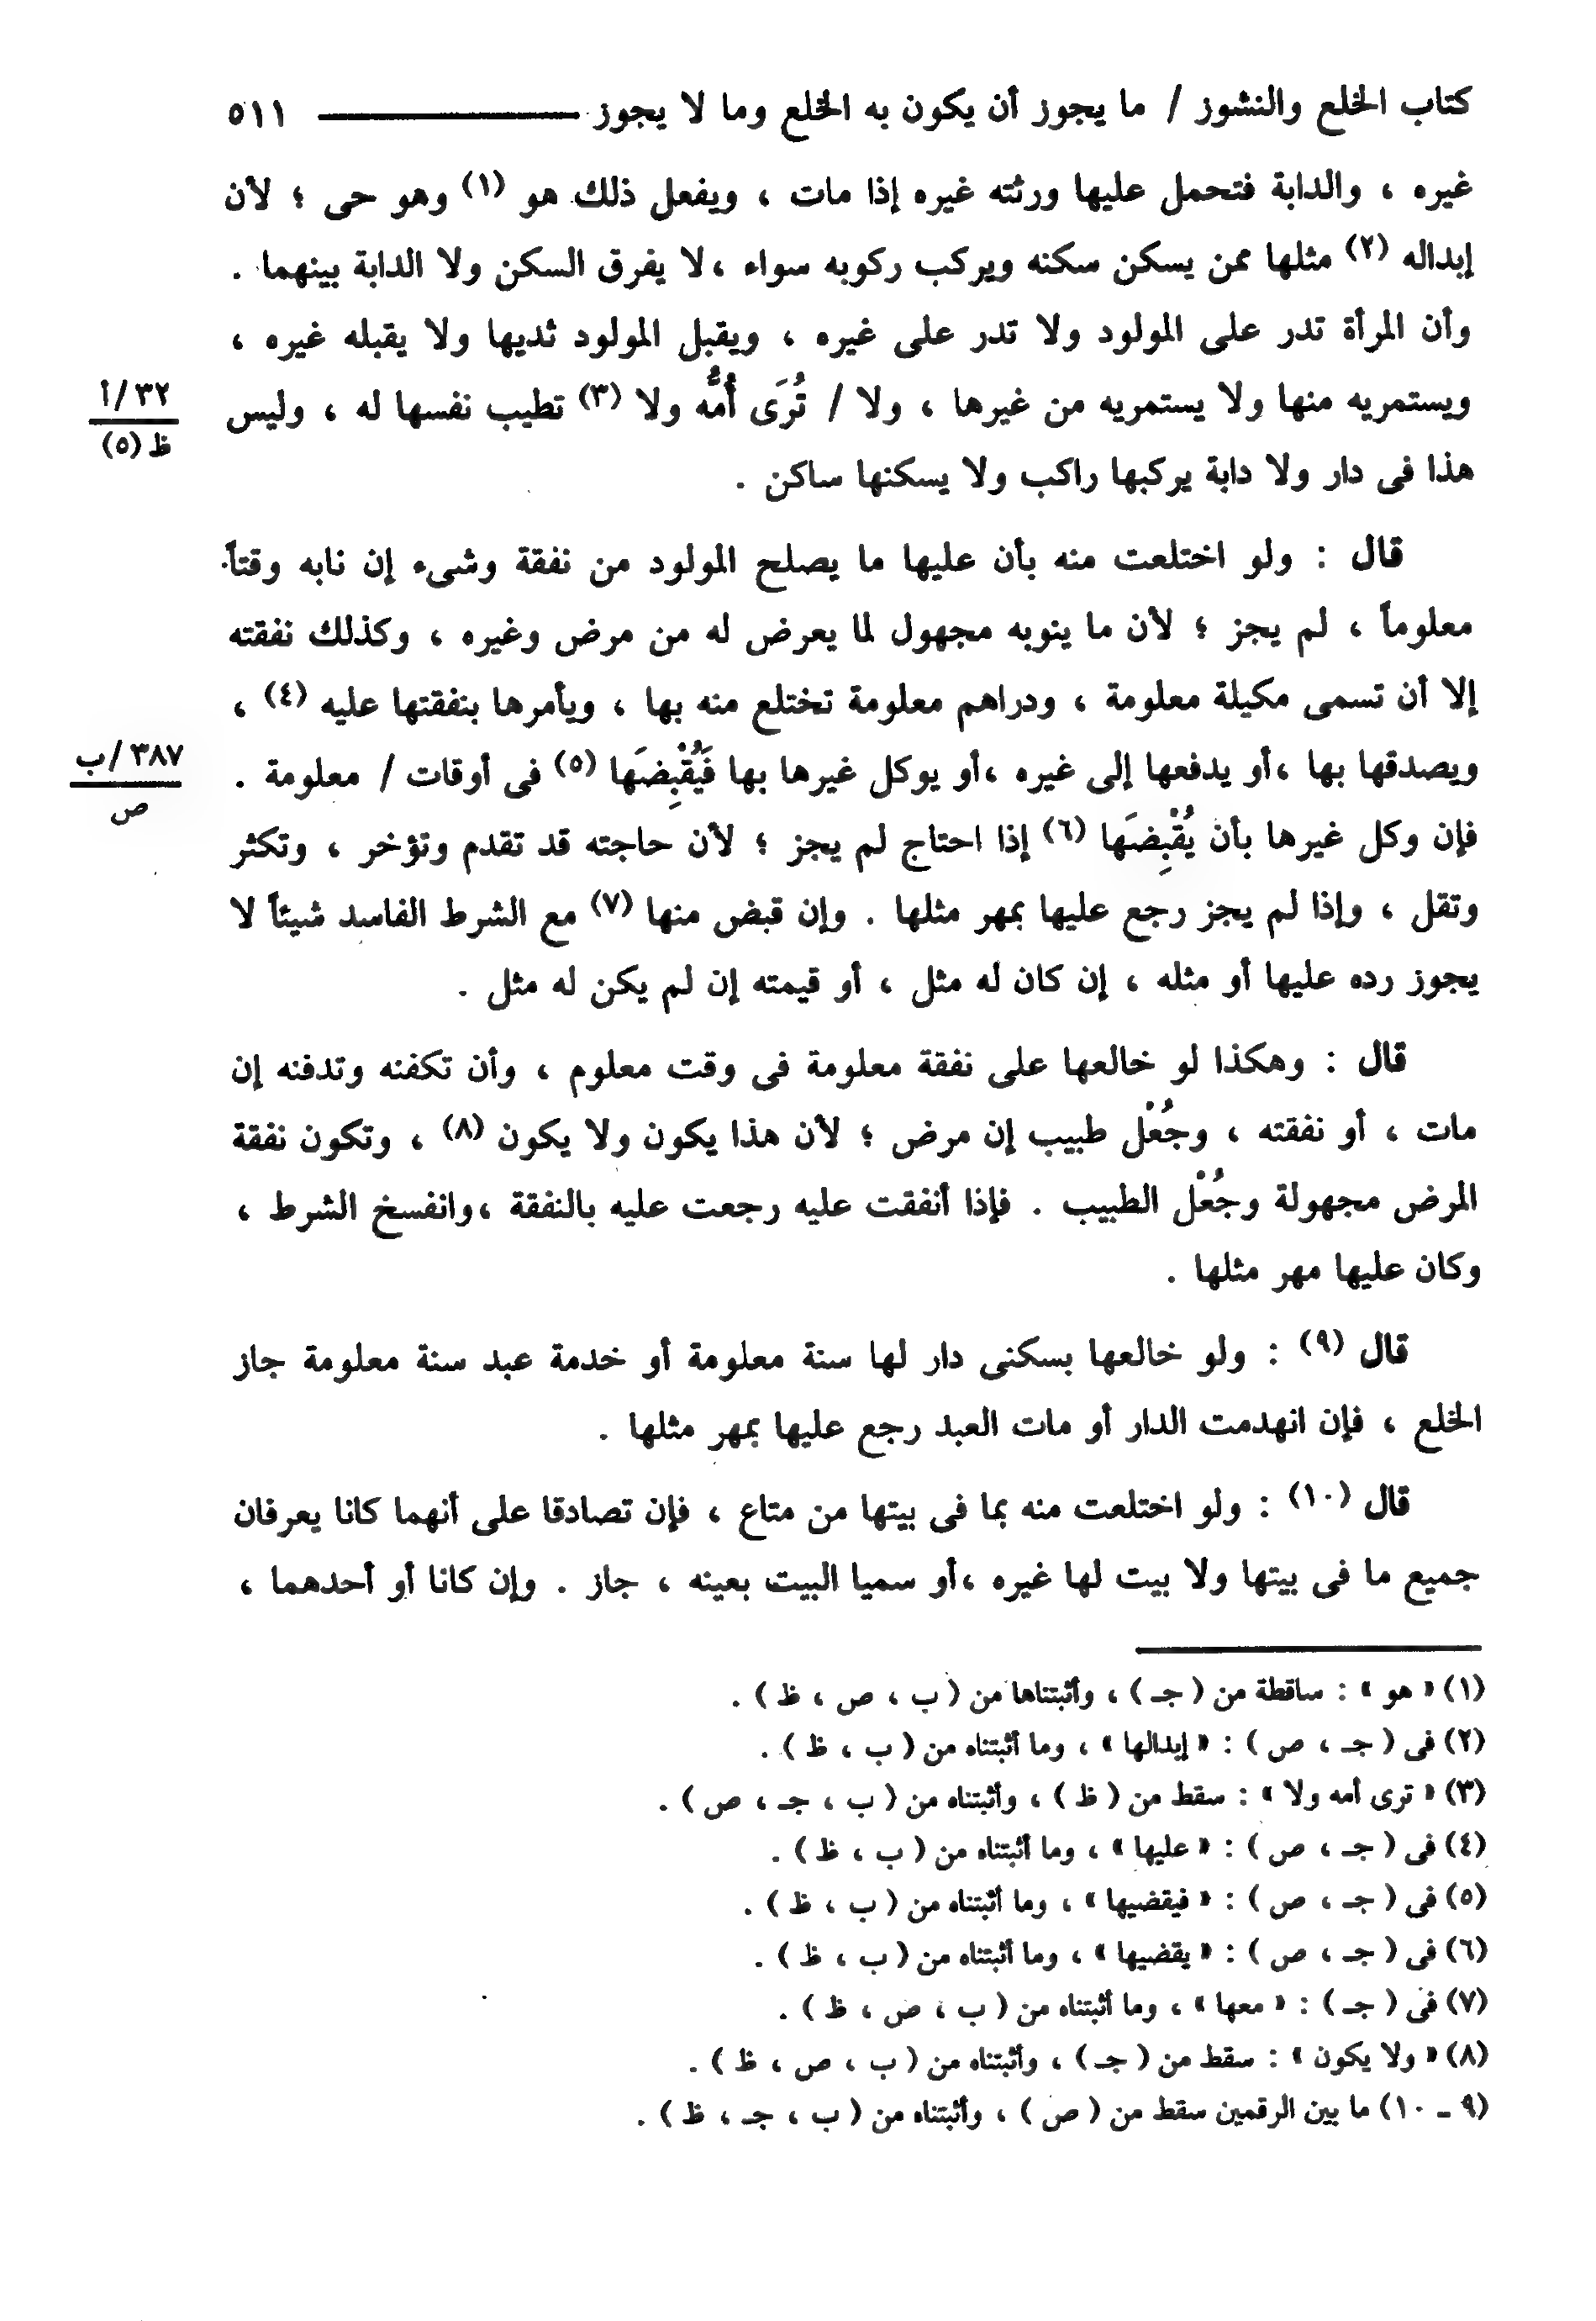 كتاب الخلع والنشوز / ما يجوز أن يكون به الخلع وما لا يجوز ـــــــ ٥١١
غيره ، والدابة فتحمل عليها ورثته غيره إذا مات ، ويفعل ذلك هو (١) وهو حى ؛ لأن
إبداله (٢) مثلها ممن يسكن سكنه ويركب ركوبه سواء ،لا يفرق السكن ولا الدابة بينهما .
وأن المرأة تدر على المولود ولا تدر على غيره ، ويقبل المولود ثديها ولا يقبله غيره ،
ويستمريه منها ولا يستمريه من غيرها ، ولا / تُرَى أُمُّه ولا (٣) تطيب نفسها له ، وليس
٣٢/أ
ظ (٥)
هذا فى دار ولا دابة يركبها راكب ولا يسكنها ساكن .
قال : ولو اختلعت منه بأن عليها ما يصلح المولود من نفقة وشىء إن نابه وقتاً
معلوماً ، لم يجز ؛ لأن ما ينوبه مجهول لما يعرض له من مرض وغيره ، وكذلك نفقته
إلا أن تسمى مكيلة معلومة ، ودراهم معلومة تختلع منه بها ، ويأمرها بنفقتها عليه (٤) ،
ويصدقها بها ،أو يدفعها إلى غيره ،أو يوكل غيرها بها فَيُقْبِضَها (٥) فى أوقات / معلومة .
٣٨٧/ب
ص
فإن وكل غيرها بأن يُقْبِضَها (٦) إذا احتاج لم يجز ؛ لأن حاجته قد تقدم وتؤخر ، وتكثر
وتقل ، وإذا لم يجز رجع عليها بمهر مثلها . وإن قبض منها (٧) مع الشرط الفاسد شيئاً لا
يجوز رده عليها أو مثله ، إن كان له مثل ، أو قيمته إن لم يكن له مثل .
قال : وهكذا لو خالعها على نفقة معلومة فى وقت معلوم ، وأن تكفنه وتدفنه إن
مات ، أو نفقته ، وجُعْل طبيب إن مرض ؛ لأن هذا يكون ولا يكون (٨) ، وتكون نفقة
المرض مجهولة وجُعْل الطبيب . فإذا أنفقت عليه رجعت عليه بالنفقة ،وانفسخ الشرط ،
وكان عليها مهر مثلها .
قال (٩) : ولو خالعها بسكنى دار لها سنة معلومة أو خدمة عبد سنة معلومة جاز
الخلع ، فإن انهدمت الدار أو مات العبد رجع عليها بمهر مثلها .
قال (١٠) : ولو اختلعت منه بما فى بيتها من متاع ، فإن تصادقا على أنهما كانا يعرفان
جميع ما فى بيتها ولا بيت لها غيره ،أو سميا البيت بعينه ، جاز . وإن كانا أو أحدهما ،
(١) « هو » : ساقطة من ( جـ ) ، وأثبتناها من ( ب ، ص ، ظ ) .
(٢) فى ( جـ ، ص ) : « إبدالها » ، وما أثبتناه من ( ب ، ظ ) .
(٣) « ترى أمه ولا » : سقط من ( ظ ) ، وأثبتناه من ( ب ، جـ ، ص ) .
(٤) فى ( جـ ، ص ) : « عليها » ، وما أثبتناه من ( ب ، ظ ) .
(٥) فى ( جـ ، ص ) : « فيقضيها » ، وما أثبتناه من ( ب ، ظ ) .
(٦) فى ( جـ ، ص ) : « يقضيها » ، وما أثبتناه من ( ب ، ظ ) .
(٧) فى ( جـ ) : « معها » ، وما أثبتناه من ( ب ، ص ، ظ ) .
(٨) « ولا يكون » : سقط من ( جـ ) ، وأثبتناه من ( ب ، ص ، ظ ) .
(٩ ـ ١٠) ما بين الرقمين سقط من ( ص ) ، وأثبتناه من ( ب ، جـ ، ظ ) .